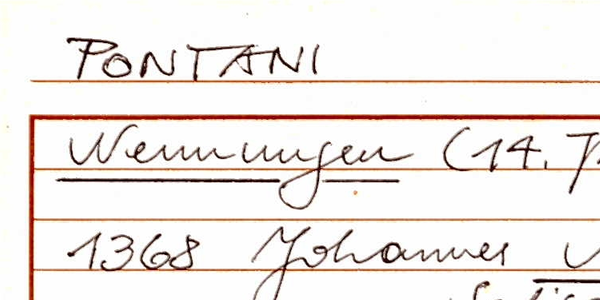 PONTANI
Nennungen (14. 
1368 Johannes